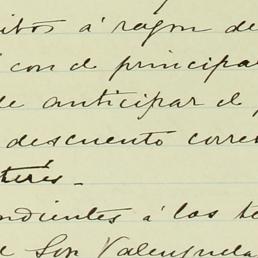 itos á razon de
con el principal
de anticipar el
descuento corre
terés.
ndientes á las te
Valenzuela